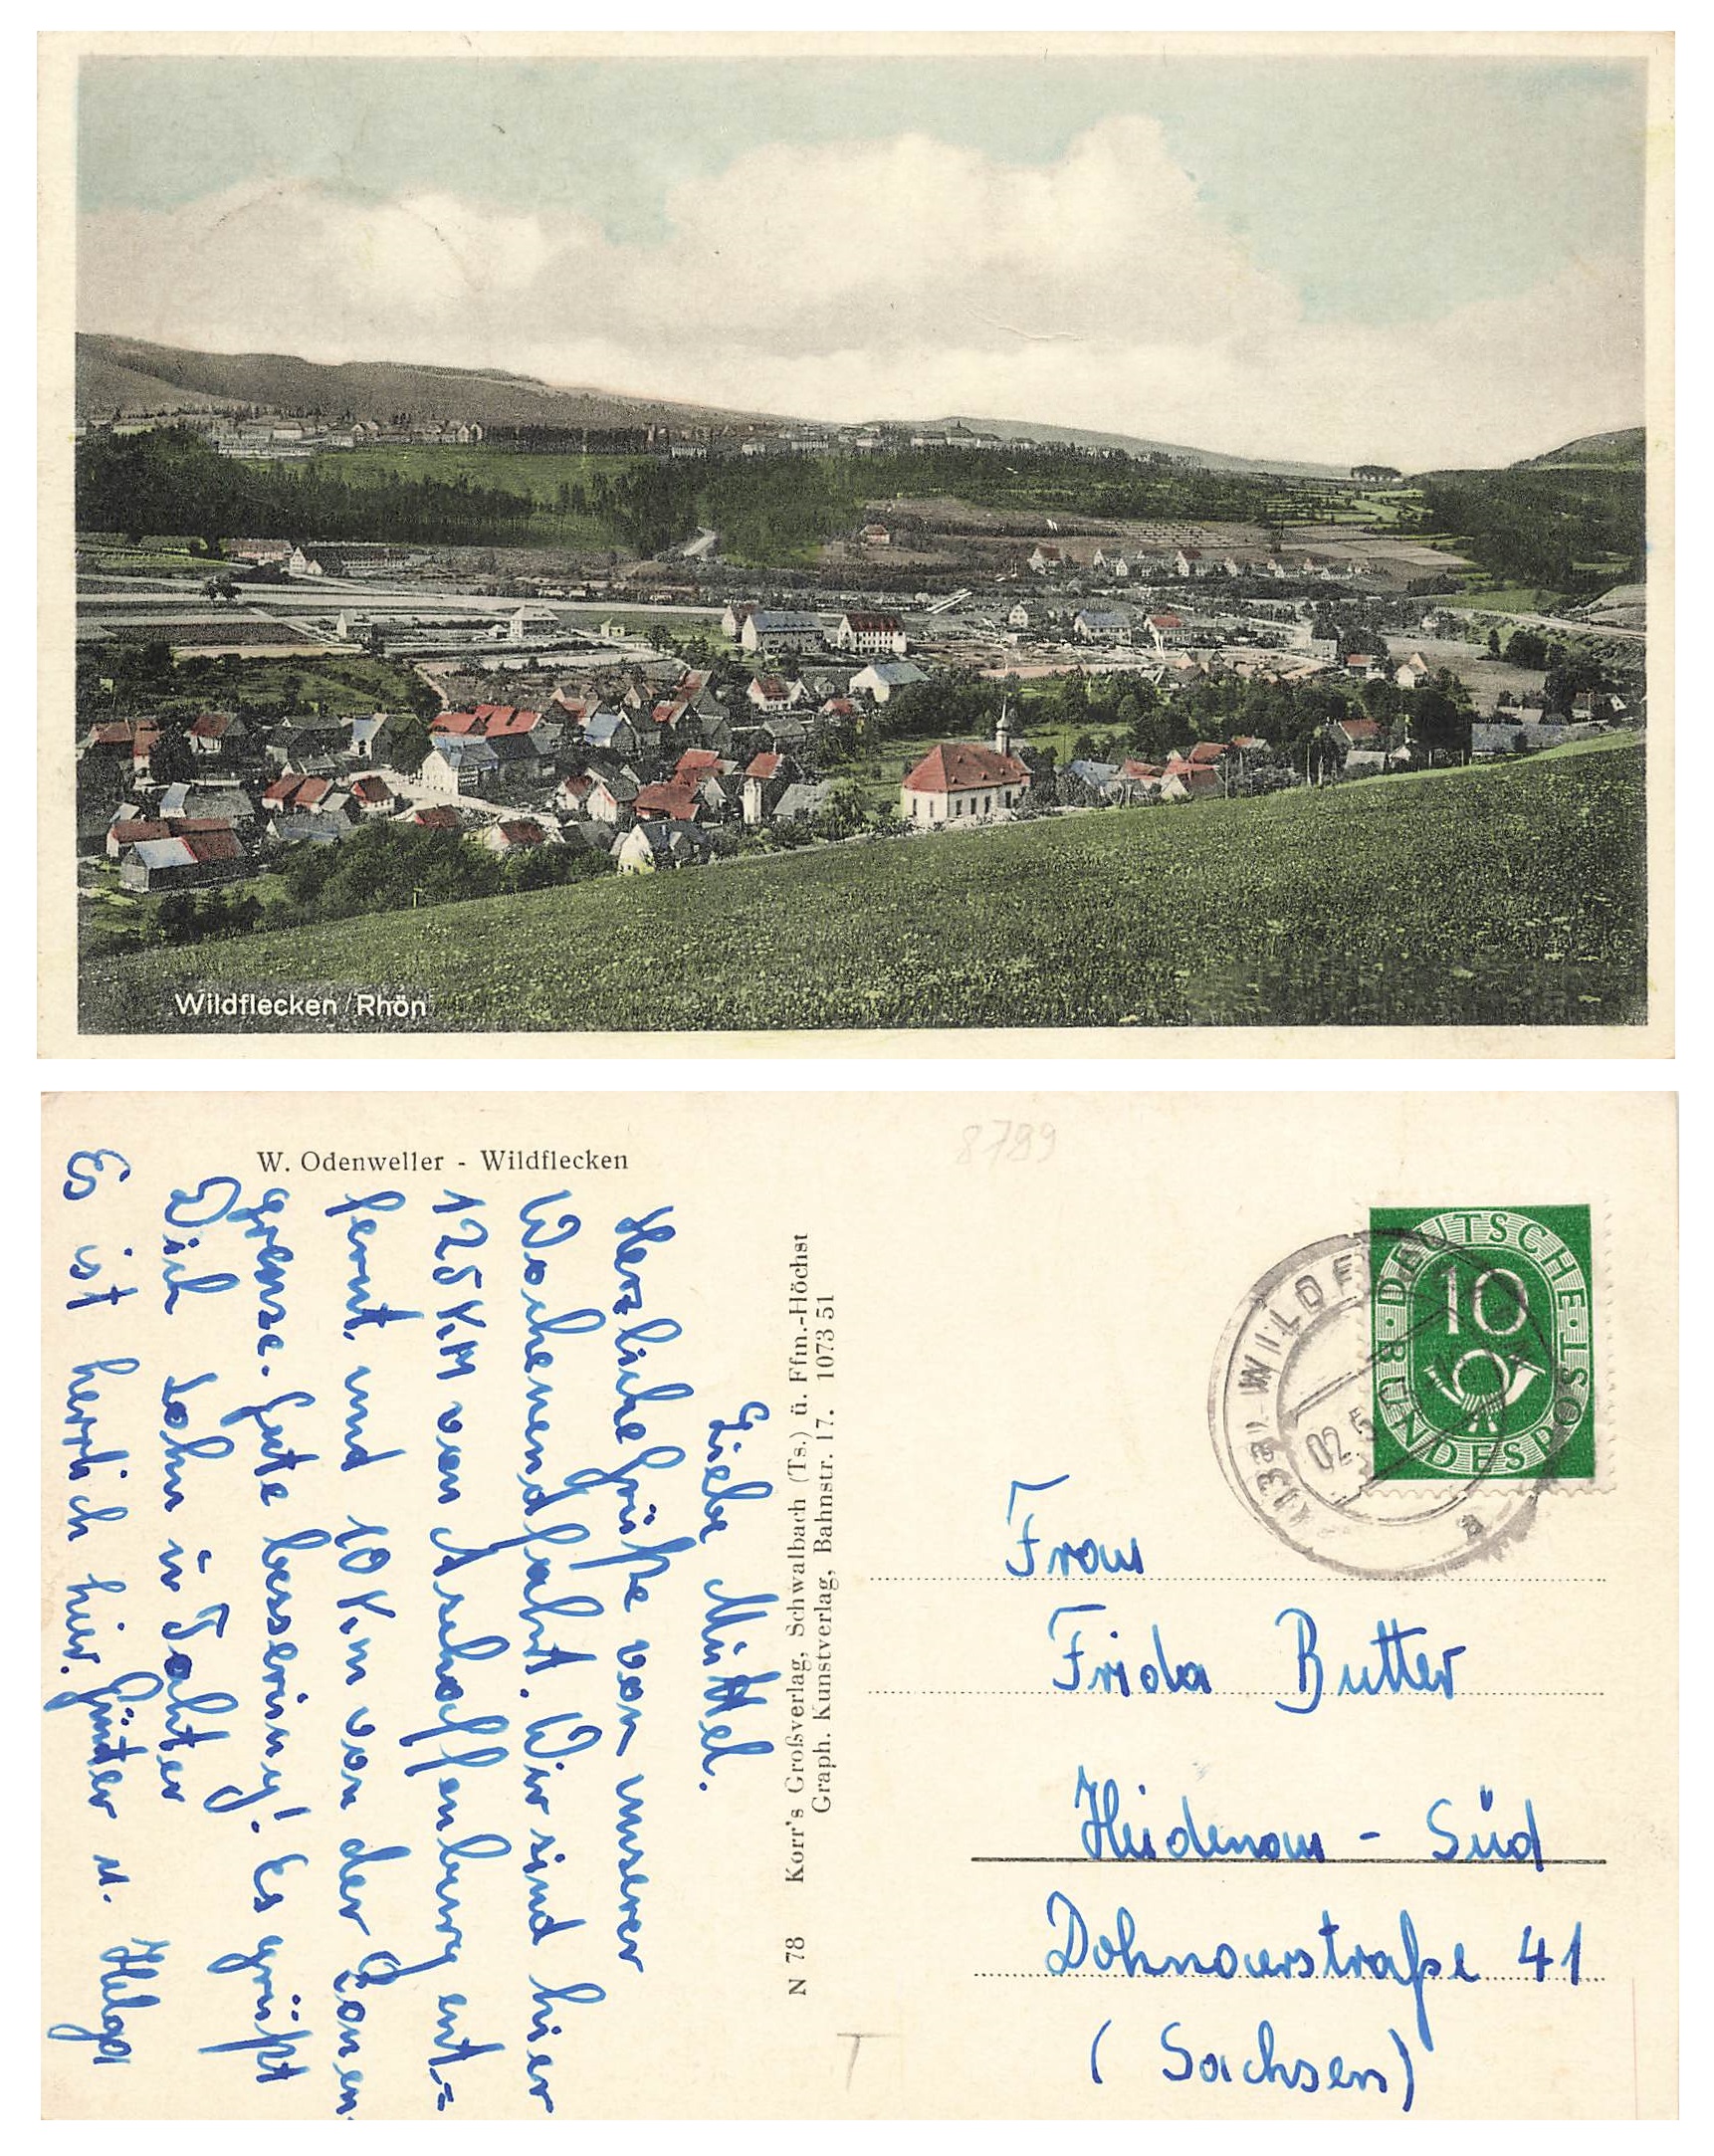 Wildflecken/Rhön
W. Odenweller - Wildflecken
8799
Liebe Muttel.
Herzliche Grüße von unserer
Wochenendfahrt. Wir sind hier
125 KM von Aschaffenburg ent=
fernt und 10 Km von der Zonen
grense. Gute besserung! Es grüßt
Dich Sohn u Tohter
Günter u. Helga
Es ist herrlich hier.
N 78 Korr's Großverlag, Schwalbach (Ts.) ü. Ffm.-Höchst
Graph. Kunstverlag, Bahnstr. 17. 1073 51
DEUTSCHE BUNDESPOST
10
(13a) WILDF
02.5
a
Frau
Frida Butter
Heidenau - Süd
Dohnauerstraße 41
(Sachsen)
T